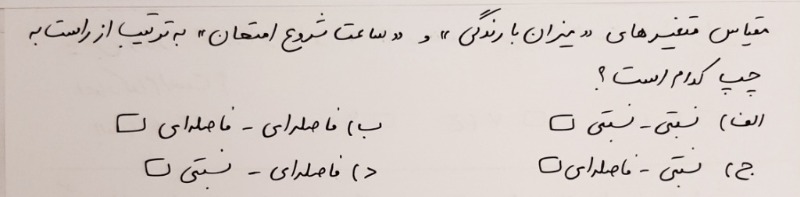 مقیاس متغیرهای «میزان بارندگی» و «ساعت شروع امتحان» به ترتیب از راست به
چپ کدام است؟
الف) نسبتی - نسبتی □ ب) فاصله‌ای - فاصله‌ای □
ج) نسبتی - فاصله‌ای □ د) فاصله‌ای - نسبتی □